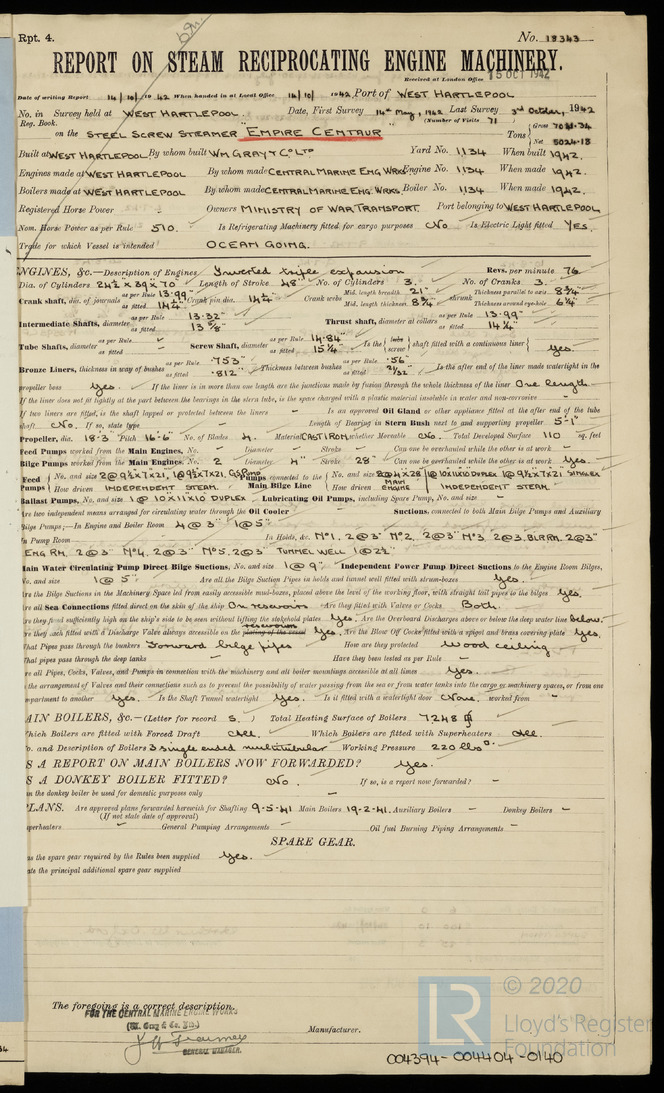 Rpt. 4.
No. 18343
REPORT ON STEAM RECIPROCATING ENGINE MACHINERY.
Received at London Office 15 OCT 1942
Date of writing Report 14/10/1942 When handed in at Local Office 14/10/1942 Port of WEST HARTLEPOOL
No. in Survey held at WEST HARTLEPOOL Date, First Survey 14th May, 1942 Last Survey 3rd October, 1942
Reg. Book. (Number of Visits 71)
on the STEEL SCREW STEAMER "EMPIRE CENTAUR" Tons { Gross 7041.34 Net 5024.18
Built at WEST HARTLEPOOL By whom built WM GRAY & Co LTD Yard No. 1134 When built 1942.
Engines made at WEST HARTLEPOOL By whom made CENTRAL MARINE ENG. WRKS Engine No. 1134 When made 1942.
Boilers made at WEST HARTLEPOOL By whom made CENTRAL MARINE ENG. WRKS. Boiler No. 1134 When made 1942.
Registered Horse Power - Owners MINISTRY OF WAR TRANSPORT. Port belonging to WEST HARTLEPOOL
Nom. Horse Power as per Rule 510. Is Refrigerating Machinery fitted for cargo purposes No Is Electric Light fitted YES.
Trade for which Vessel is intended OCEAN GOING.
ENGINES, &c.—Description of Engines Inverted triple expansion Revs. per minute 76
Dia. of Cylinders 24½ x 39 x 70 Length of Stroke 48" No. of Cylinders 3. No. of Cranks 3.
Crank shaft, dia. of journals as per Rule 13.99 as fitted 14¼" Crank pin dia. 14¼" Crank webs Mid. length breadth 21" Mid. length thickness 8¾" shrunk Thickness parallel to axis 8¾" Thickness around eye-hole 6¼"
Intermediate Shafts, diameter as per Rule 13.32" as fitted 13⅝" Thrust shaft, diameter at collars as per Rule 13.99" as fitted 14¼"
Tube Shafts, diameter as per Rule - as fitted - Screw Shaft, diameter as per Rule 14.84" as fitted 15¼" Is the { tube screw } shaft fitted with a continuous liner { Yes.
Bronze Liners, thickness in way of bushes as per Rule .753" as fitted .812" Thickness between bushes as per Rule .56" as fitted 21/32" Is the after end of the liner made watertight in the
propeller boss Yes. If the liner is in more than one length are the junctions made by fusion through the whole thickness of the liner One length
If the liner does not fit tightly at the part between the bearings in the stern tube, is the space charged with a plastic material insoluble in water and non-corrosive -
If two liners are fitted, is the shaft lapped or protected between the liners - Is an approved Oil Gland or other appliance fitted at the after end of the tube
shaft No. If so, state type - Length of Bearing in Stern Bush next to and supporting propeller 5'-1"
Propeller, dia. 18'-3" Pitch 16'-6" No. of Blades 4. Material CAST IRON whether Moveable No. Total Developed Surface 110 sq. feet
Feed Pumps worked from the Main Engines, No. - Diameter - Stroke - Can one be overhauled while the other is at work -
Bilge Pumps worked from the Main Engines, No. 2 Diameter 4" Stroke 28" Can one be overhauled while the other is at work Yes.
Feed Pumps { No. and size How driven INDEPENDENT STEAM. Pumps connected to the Main Bilge Line { No. and size How driven MAIN ENGINE INDEPENDENT STEAM
Ballast Pumps, No. and size 1@ 10x11x10 DUPLEX Lubricating Oil Pumps, including Spare Pump, No. and size -
Are two independent means arranged for circulating water through the Oil Cooler - Suctions, connected to both Main Bilge Pumps and Auxiliary
Bilge Pumps;—In Engine and Boiler Room 4@3" 1@5"
In Pump Room - In Holds, &c. No 1. 2@3" No 2. 2@3" No 3. 2@3. BLR RM. 2@3"
ENG RM. 2@3" No 4. 2@3" No 5. 2@3" TUNNEL WELL 1@2½"
Main Water Circulating Pump Direct Bilge Suctions, No. and size 1@9" Independent Power Pump Direct Suctions to the Engine Room Bilges,
No. and size 1@5" Are all the Bilge Suction Pipes in holds and tunnel well fitted with strum-boxes Yes.
Are the Bilge Suctions in the Machinery Space led from easily accessible mud-boxes, placed above the level of the working floor, with straight tail pipes to the bilges Yes.
Are all Sea Connections fitted direct on the skin of the ship On reservoirs Are they fitted with Valves or Cocks Both.
Are they fixed sufficiently high on the ship's side to be seen without lifting the stokehold plates Yes. Are the Overboard Discharges above or below the deep water line below.
Are they each fitted with a Discharge Valve always accessible on the plating of the vessel reservoirs Yes. Are the Blow Off Cocks fitted with a spigot and brass covering plate Yes.
What Pipes pass through the bunkers Forward bilge pipes How are they protected Wood ceiling
What pipes pass through the deep tanks - Have they been tested as per Rule -
Are all Pipes, Cocks, Valves, and Pumps in connection with the machinery and all boiler mountings accessible at all times Yes.
Is the arrangement of Valves and their connections such as to prevent the possibility of water passing from the sea or from water tanks into the cargo or machinery spaces, or from one
compartment to another Yes. Is the Shaft Tunnel watertight Yes. Is it fitted with a watertight door None. worked from -
MAIN BOILERS, &c.—(Letter for record S.) Total Heating Surface of Boilers 7248
Which Boilers are fitted with Forced Draft All. Which Boilers are fitted with Superheaters All.
No. and Description of Boilers 3 single ended multitubular Working Pressure 220 lbs
IS A REPORT ON MAIN BOILERS NOW FORWARDED? Yes.
IS A DONKEY BOILER FITTED? No. If so, is a report now forwarded? -
Can the donkey boiler be used for domestic purposes only -
PLANS. Are approved plans forwarded herewith for Shafting 9-5-41 Main Boilers 19-2-41. Auxiliary Boilers - Donkey Boilers -
(If not state date of approval)
Superheaters - General Pumping Arrangements - Oil fuel Burning Piping Arrangements -
SPARE GEAR.
Has the spare gear required by the Rules been supplied Yes.
State the principal additional spare gear supplied
The foregoing is a correct description.
FOR THE CENTRAL MARINE ENGINE WORKS
(Wm. Gray & Co. Ltd.)
GENERAL MANAGER.
Manufacturer.
LR
© 2020
Lloyd's Register
Foundation
004394-004404-0140